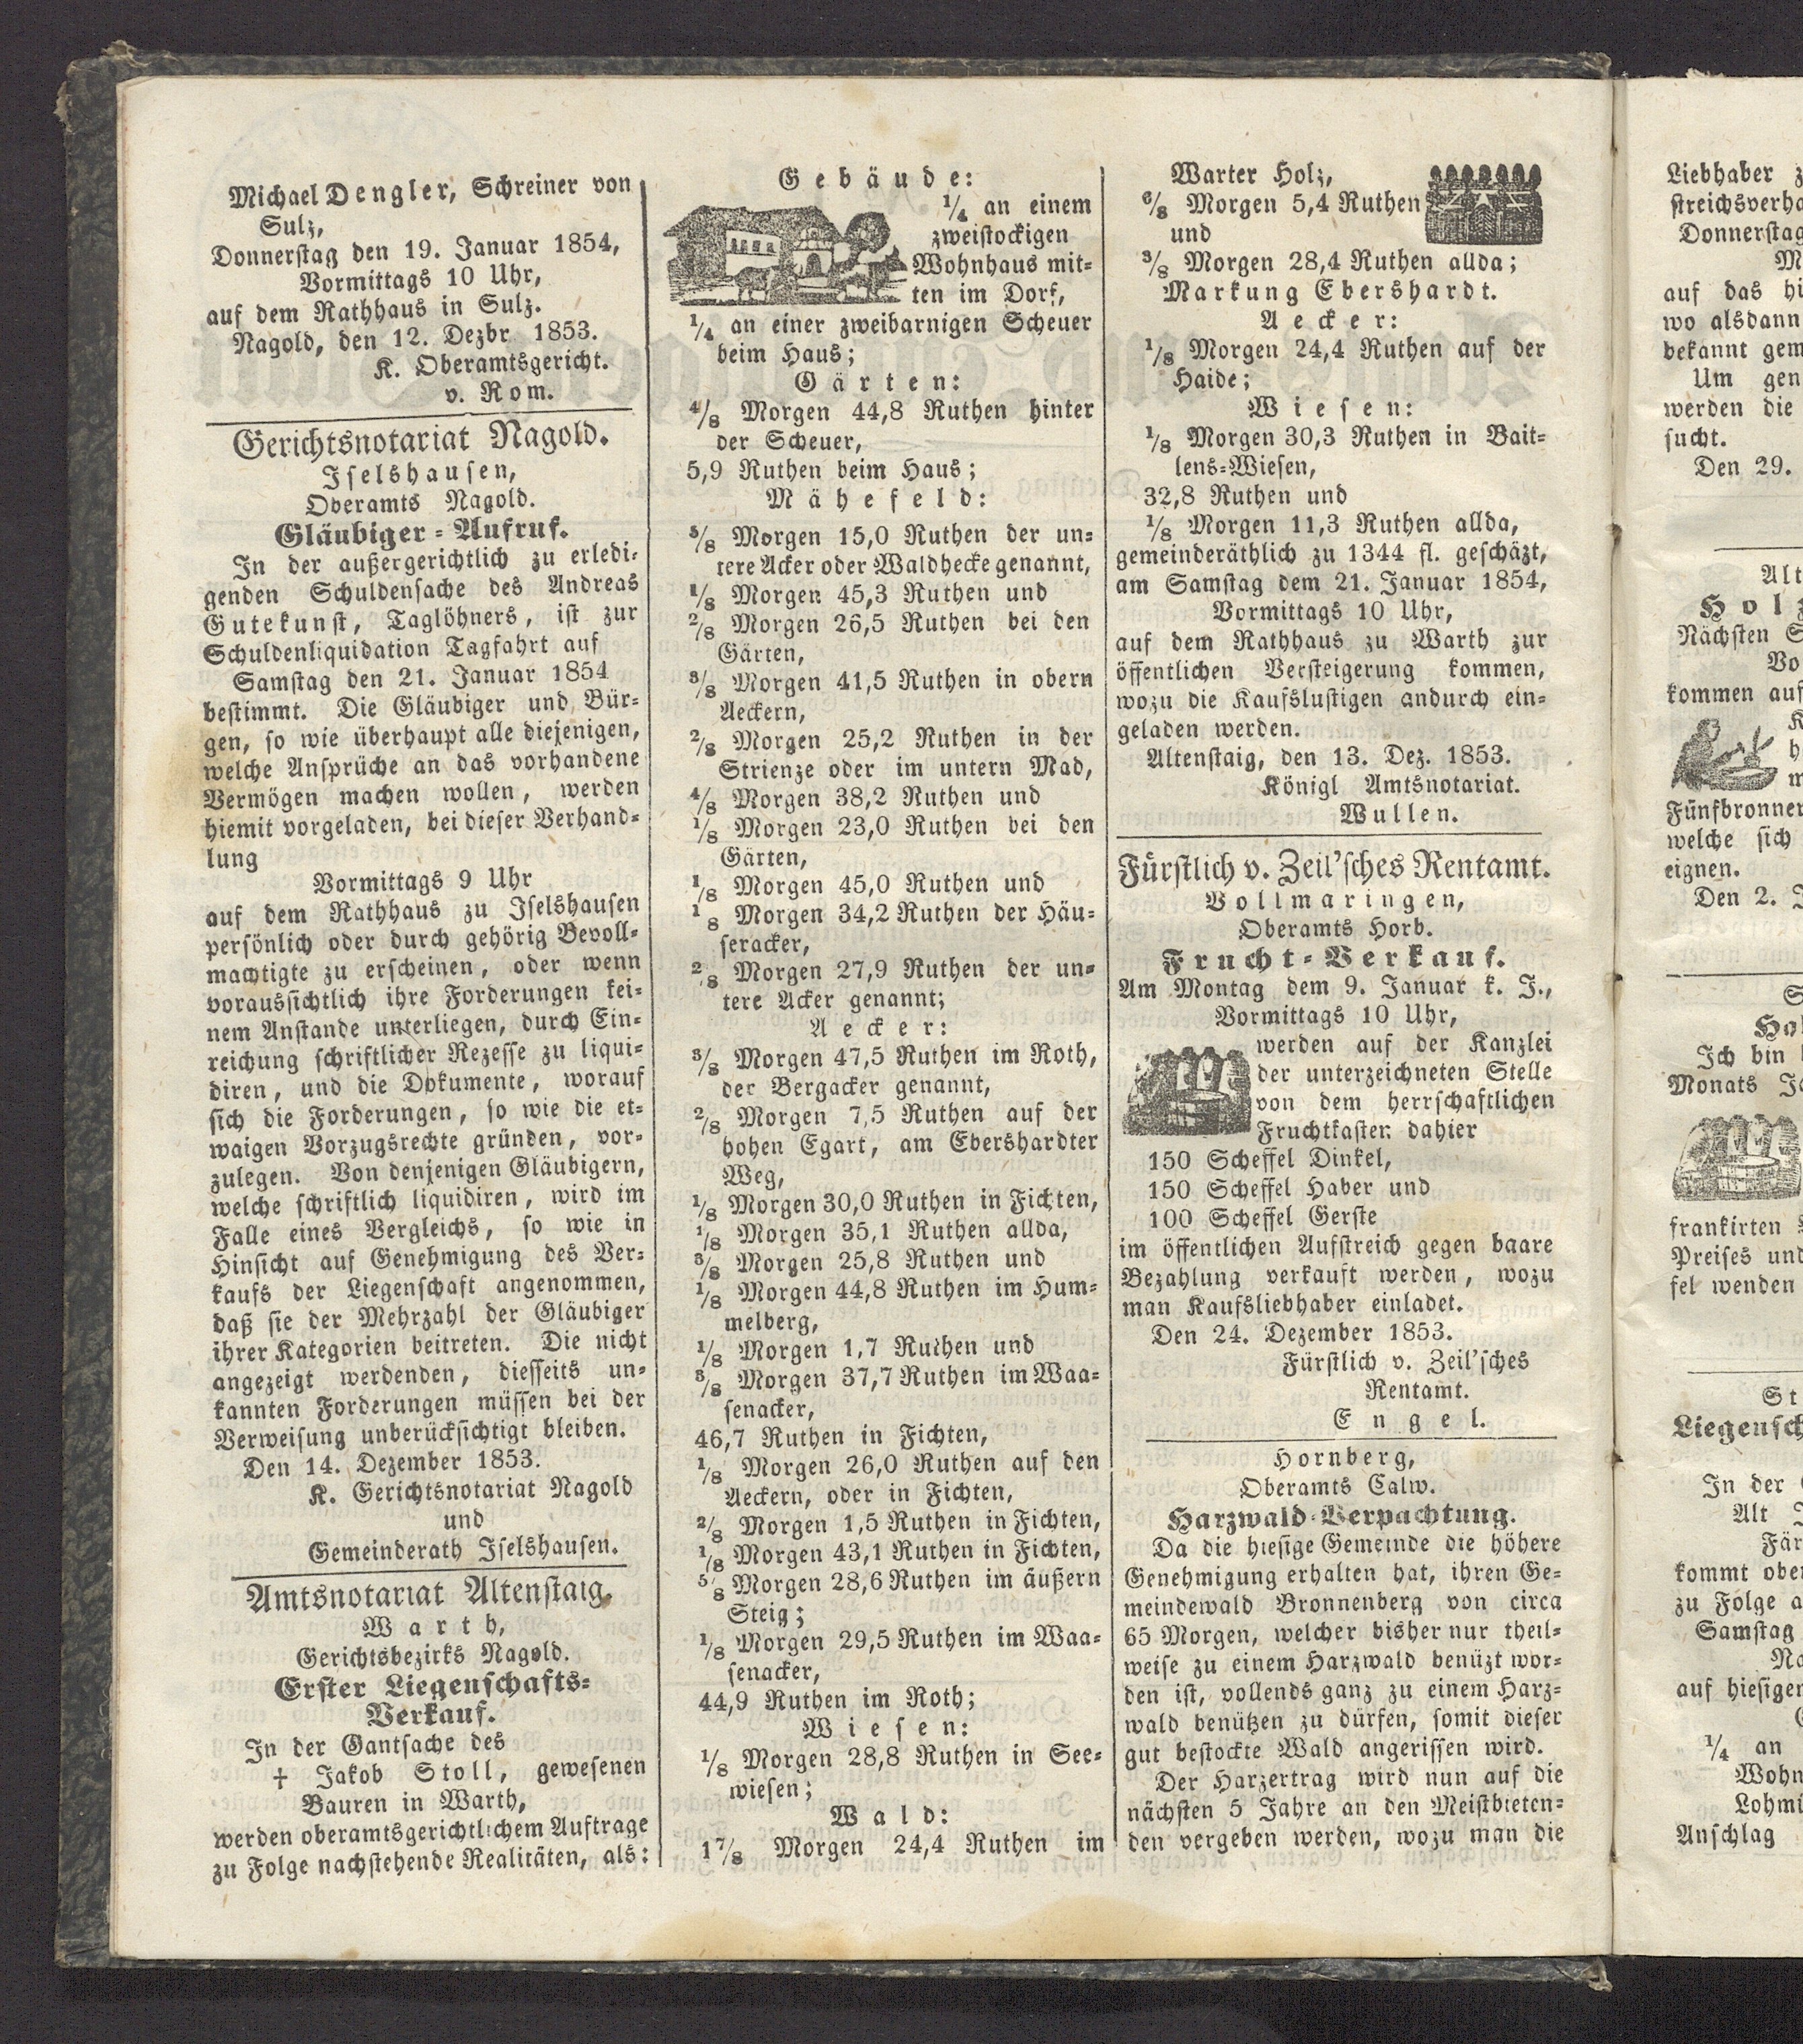 Michael Dengler, Schreiner von
Sulz,
Donnerstag den 19. Januar 1854,
Vormittags 10 Uhr,
auf dem Rathhaus in Sulz.
Nagold, den 12. Dezbr 1853.
K. Oberamtsgericht.
v. Rom.
Gerichtsnotariat Nagold.
Iselshausen,
Oberamts Nagold.
Gläubiger-Aufruf.
In der außergerichtlich zu erledi-
genden Schuldensache des Andreas
Gutekunst, Taglöhners, ist zur
Schuldenliquidation Tagfahrt auf
Samstag den 21. Januar 1854
bestimmt. Die Gläubiger und Bür-
gen, so wie überhaupt alle diejenigen,
welche Ansprüche an das vorhandene
Vermögen machen wollen, werden
hiemit vorgeladen, bei dieser Verhand-
lung
Vormittags 9 Uhr
auf dem Rathhaus zu Iselshausen
persönlich oder durch gehörig Bevoll-
machtigte zu erscheinen, oder wenn
voraussichtlich ihre Forderungen kei-
nem Anstande unterliegen, durch Ein-
reichung schriftlicher Rezesse zu liqui-
diren, und die Dokumente, worauf
sich die Forderungen, so wie die et-
waigen Vorzugsrechte gründen, vor-
zulegen. Von denjenigen Gläubigern,
welche schriftlich liquidiren, wird im
Falle eines Vergleichs, so wie in
Hinsicht auf Genehmigung des Ver-
kaufs der Liegenschaft angenommen,
daß sie der Mehrzahl der Gläubiger
ihrer Kategorien beitreten. Die nicht
angezeigt werdenden, diesseits un-
kannten Forderungen müssen bei der
Verweisung unberücksichtigt bleiben.
Den 14. Dezember 1853.
K. Gerichtsnotariat Nagold
und
Gemeinderath Iselshausen.
Amtsnotariat Altenstaig.
Warth,
Gerichtsbezirks Nagold.
Erster Liegenschafts-
Verkauf.
In der Gantsache des
† Jakob Stoll, gewesenen
Bauren in Warth,
werden oberamtsgerichtlichem Auftrage
zu Folge nachstehende Realitäten, als:
Gebäude:
1/4 an einem
zweistockigen
Wohnhaus mit-
ten im Dorf,
1/4 an einer zweibarnigen Scheuer
beim Haus;
Gärten:
4/8 Morgen 44,8 Ruthen hinter
der Scheuer,
5,9 Ruthen beim Haus;
Mähefeld:
5/8 Morgen 15,0 Ruthen der un-
tere Acker oder Waldhecke genannt,
1/8 Morgen 45,3 Ruthen und
2/8 Morgen 26,5 Ruthen bei den
Gärten,
3/8 Morgen 41,5 Ruthen in obern
Aeckern,
2/8 Morgen 25,2 Ruthen in der
Strienze oder im untern Mad,
4/8 Morgen 38,2 Ruthen und
1/8 Morgen 23,0 Ruthen bei den
Gärten,
1/8 Morgen 45,0 Ruthen und
1/8 Morgen 34,2 Ruthen der Häu-
seracker,
2/8 Morgen 27,9 Ruthen der un-
tere Acker genannt;
Aecker:
3/8 Morgen 47,5 Ruthen im Roth,
der Bergacker genannt,
2/8 Morgen 7,5 Ruthen auf der
hohen Egart, am Ebershardter
Weg,
1/8 Morgen 30,0 Ruthen in Fichten,
1/8 Morgen 35,1 Ruthen allda,
3/8 Morgen 25,8 Ruthen und
1/8 Morgen 44,8 Ruthen im Hum-
melberg,
1/8 Morgen 1,7 Ruthen und
3/8 Morgen 37,7 Ruthen im Waa-
senacker,
46,7 Ruthen in Fichten,
1/8 Morgen 26,0 Ruthen auf den
Aeckern, oder in Fichten,
2/8 Morgen 1,5 Ruthen in Fichten,
1/8 Morgen 43,1 Ruthen in Fichten,
5/8 Morgen 28,6 Ruthen im äußern
Steig;
1/8 Morgen 29,5 Ruthen im Waa-
senacker,
44,9 Ruthen im Roth;
Wiesen:
1/8 Morgen 28,8 Ruthen in See-
wiesen;
Wald:
1 7/8 Morgen 24,4 Ruthen im
Warter Holz,
6/8 Morgen 5,4 Ruthen
und
3/8 Morgen 28,4 Ruthen allda;
Markung Ebershardt.
Aecker:
1/8 Morgen 24,4 Ruthen auf der
Haide;
Wiesen:
1/8 Morgen 30,3 Ruthen in Bait-
lens-Wiesen,
32,8 Ruthen und
1/8 Morgen 11,3 Ruthen allda,
gemeinderäthlich zu 1344 fl. geschäzt,
am Samstag dem 21. Januar 1854,
Vormittags 10 Uhr,
auf dem Rathhaus zu Warth zur
öffentlichen Versteigerung kommen,
wozu die Kaufslustigen andurch ein-
geladen werden.
Altenstaig, den 13. Dez. 1853.
Königl Amtsnotariat.
Wullen.
Fürstlich v. Zeil'sches Rentamt.
Vollmaringen,
Oberamts Horb.
Frucht-Verkauf.
Am Montag dem 9. Januar k. J.,
Vormittags 10 Uhr,
werden auf der Kanzlei
der unterzeichneten Stelle
von dem herrschaftlichen
Fruchtkasten dahier
150 Scheffel Dinkel,
150 Scheffel Haber und
100 Scheffel Gerste
im öffentlichen Aufstreich gegen baare
Bezahlung verkauft werden, wozu
man Kaufsliebhaber einladet.
Den 24. Dezember 1853.
Fürstlich v. Zeil'sches
Rentamt.
Engel.
Hornberg,
Oberamts Calw.
Harzwald-Verpachtung.
Da die hiesige Gemeinde die höhere
Genehmigung erhalten hat, ihren Ge-
meindewald Bronnenberg von circa
65 Morgen, welcher bisher nur theil-
weise zu einem Harzwald benüzt wor-
den ist, vollends ganz zu einem Harz-
wald benützen zu dürfen, somit dieser
gut bestockte Wald angerissen wird.
Der Harzertrag wird nun auf die
nächsten 5 Jahre an den Meistbieten-
den vergeben werden, wozu man die
Liebhaber
streichsverha
Donnerstag
auf das hi
wo alsdann
bekannt gem
Um gen
werden die
sucht.
Den 29.
Alt
Holz
Nächsten
Vo
kommen auf
Fünfbronner
welche sich
eignen.
Den 2.
Ich bin
Monats
frankirten
Preises und
fel wenden
St
Liegensch
In der
Alt
Fär
kommt ober
zu Folge a
Samstag
auf hiesiger
1/4 an
Wohn
Lohmü
Anschlag